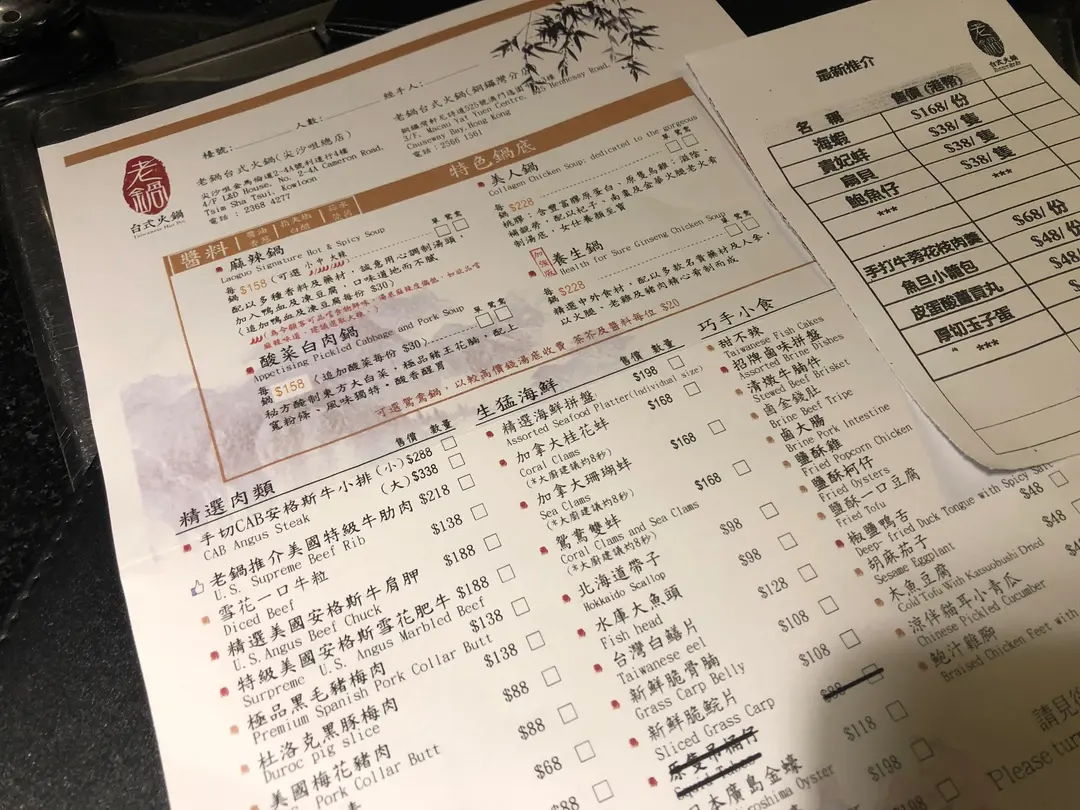 經手人:
人數:
檯號:
老鍋
台式火鍋
Taiwanese Hot Pot
老鍋台式火鍋(尖沙咀總店)
尖沙咀金馬倫道2-4A號利達行4樓
4/F L&D House, No. 2-4A Cameron Road,
Tsim Sha Tsui, Kowloon
電話：2368 4277
老鍋台式火鍋(銅鑼灣分店)
3/F, Macau Yat Yuen Centre, 525 Hennessy Road,
Causeway Bay, Hong Kong
電話：2566 1561
特色鍋底
醬料
麻辣鍋
Laoguo Signature Hot & Spicy Soup
單 鴛鴦
每鍋 $158 (可選 小 中 大辣
配以多種香料及藥材，誠意用心調制湯頭，
加入鴨血及凍豆腐，口味道地而不膩
(追加鴨血及凍豆腐每份 $30)
酸菜白肉鍋
Appetising Pickled Cabbage and Pork Soup
單 鴛鴦
每鍋 $158 (追加酸菜每份 $30)
秘方醃制東方大白菜，極品豬王花腩，配上
寬粉條、風味獨特，酸香醒胃
美人鍋
Collagen Chicken Soup; dedicated to the gorgeous
單 鴛鴦
每鍋 $228
養生鍋
Health for Sure Ginseng Chicken Soup
單 鴛鴦
每鍋 $228
精選中外食材，配以多款名貴藥材及人參，
以火腿、老雞及豬肉精心香制而成
可選鴛鴦鍋，以較高價錢湯底收費 茶芥及醬料每位 $20
精選肉類 售價 數量
手切CAB安格斯牛小排 (小) $288
CAB Angus Steak (大) $338
老鍋推介美國特級牛肋肉 $218
U.S. Supreme Beef Rib
雪花一口牛粒 $138
Diced Beef
精選美國安格斯牛肩胛 $188
U.S. Angus Beef Chuck
特級美國安格斯雪花肥牛 $188
Surpreme U.S. Angus Marbled Beef
極品黑毛豬梅肉 $138
Premium Spanish Pork Collar Butt
杜洛克黑豚梅肉 $138
Duroc pig slice
美國梅花豬肉 $88
Pork Collar Butt
$88
$68
$88
生猛海鮮 售價 數量
精選海鮮拼盤 $198
Assorted Seafood Platter(Individual size)
加拿大桂花蚌 $168
Coral Clams
(*大廚建議灼8秒)
加拿大珊瑚蚌 $168
Sea Clams
(*大廚建議灼8秒)
鴛鴦雙蚌 $168
Coral Clams and Sea Clams
(*大廚建議灼8秒)
北海道帶子 $98
Hokkaido Scallop
水庫大魚頭 $98
Fish head
台灣白鱔片 $128
Taiwanese eel
新鮮脆骨腩 $108
Grass Carp Belly
新鮮脆鯇片 $108
Sliced Grass Carp
$98
日本廣島金蠔 $118
Hiroshima Oyster
$198
巧手小食
甜不辣
Taiwanese Fish Cakes
招牌鹵味拼盤
Assorted Brine Dishes
清燉牛腩件
Stewed Beef Brisket
鹵金錢肚
Brine Beef Tripe
鹵大腸
Brine Pork Intestine
鹽酥雞
Fried Popcorn Chicken
鹽酥柯仔
Fried Oysters
鹽酥一口豆腐
Fried Tofu
椒鹽鴨舌
Deep-fried Duck Tongue with Spicy Salt
胡麻茄子 $48
Sesame Eggplant
大魚豆腐 $48
Cold Tofu With Katsuobushi Dried
涼伴貓耳小青瓜
Chinese Pickled Cucumber
鮑汁雞腳
Braised Chicken Feet with
請見
Please turn
老鍋
台式火鍋
最新推介
名 稱 售價 (港幣)
海蝦 $168/ 份
貴妃蚌 $38/ 隻
扇貝 $38/ 隻
鮑魚仔
***
手打牛蒡花枝肉羹 $68/ 份
魚旦小籠包 $48/ 份
皮蛋酸薑貢丸
厚切玉子蛋
***